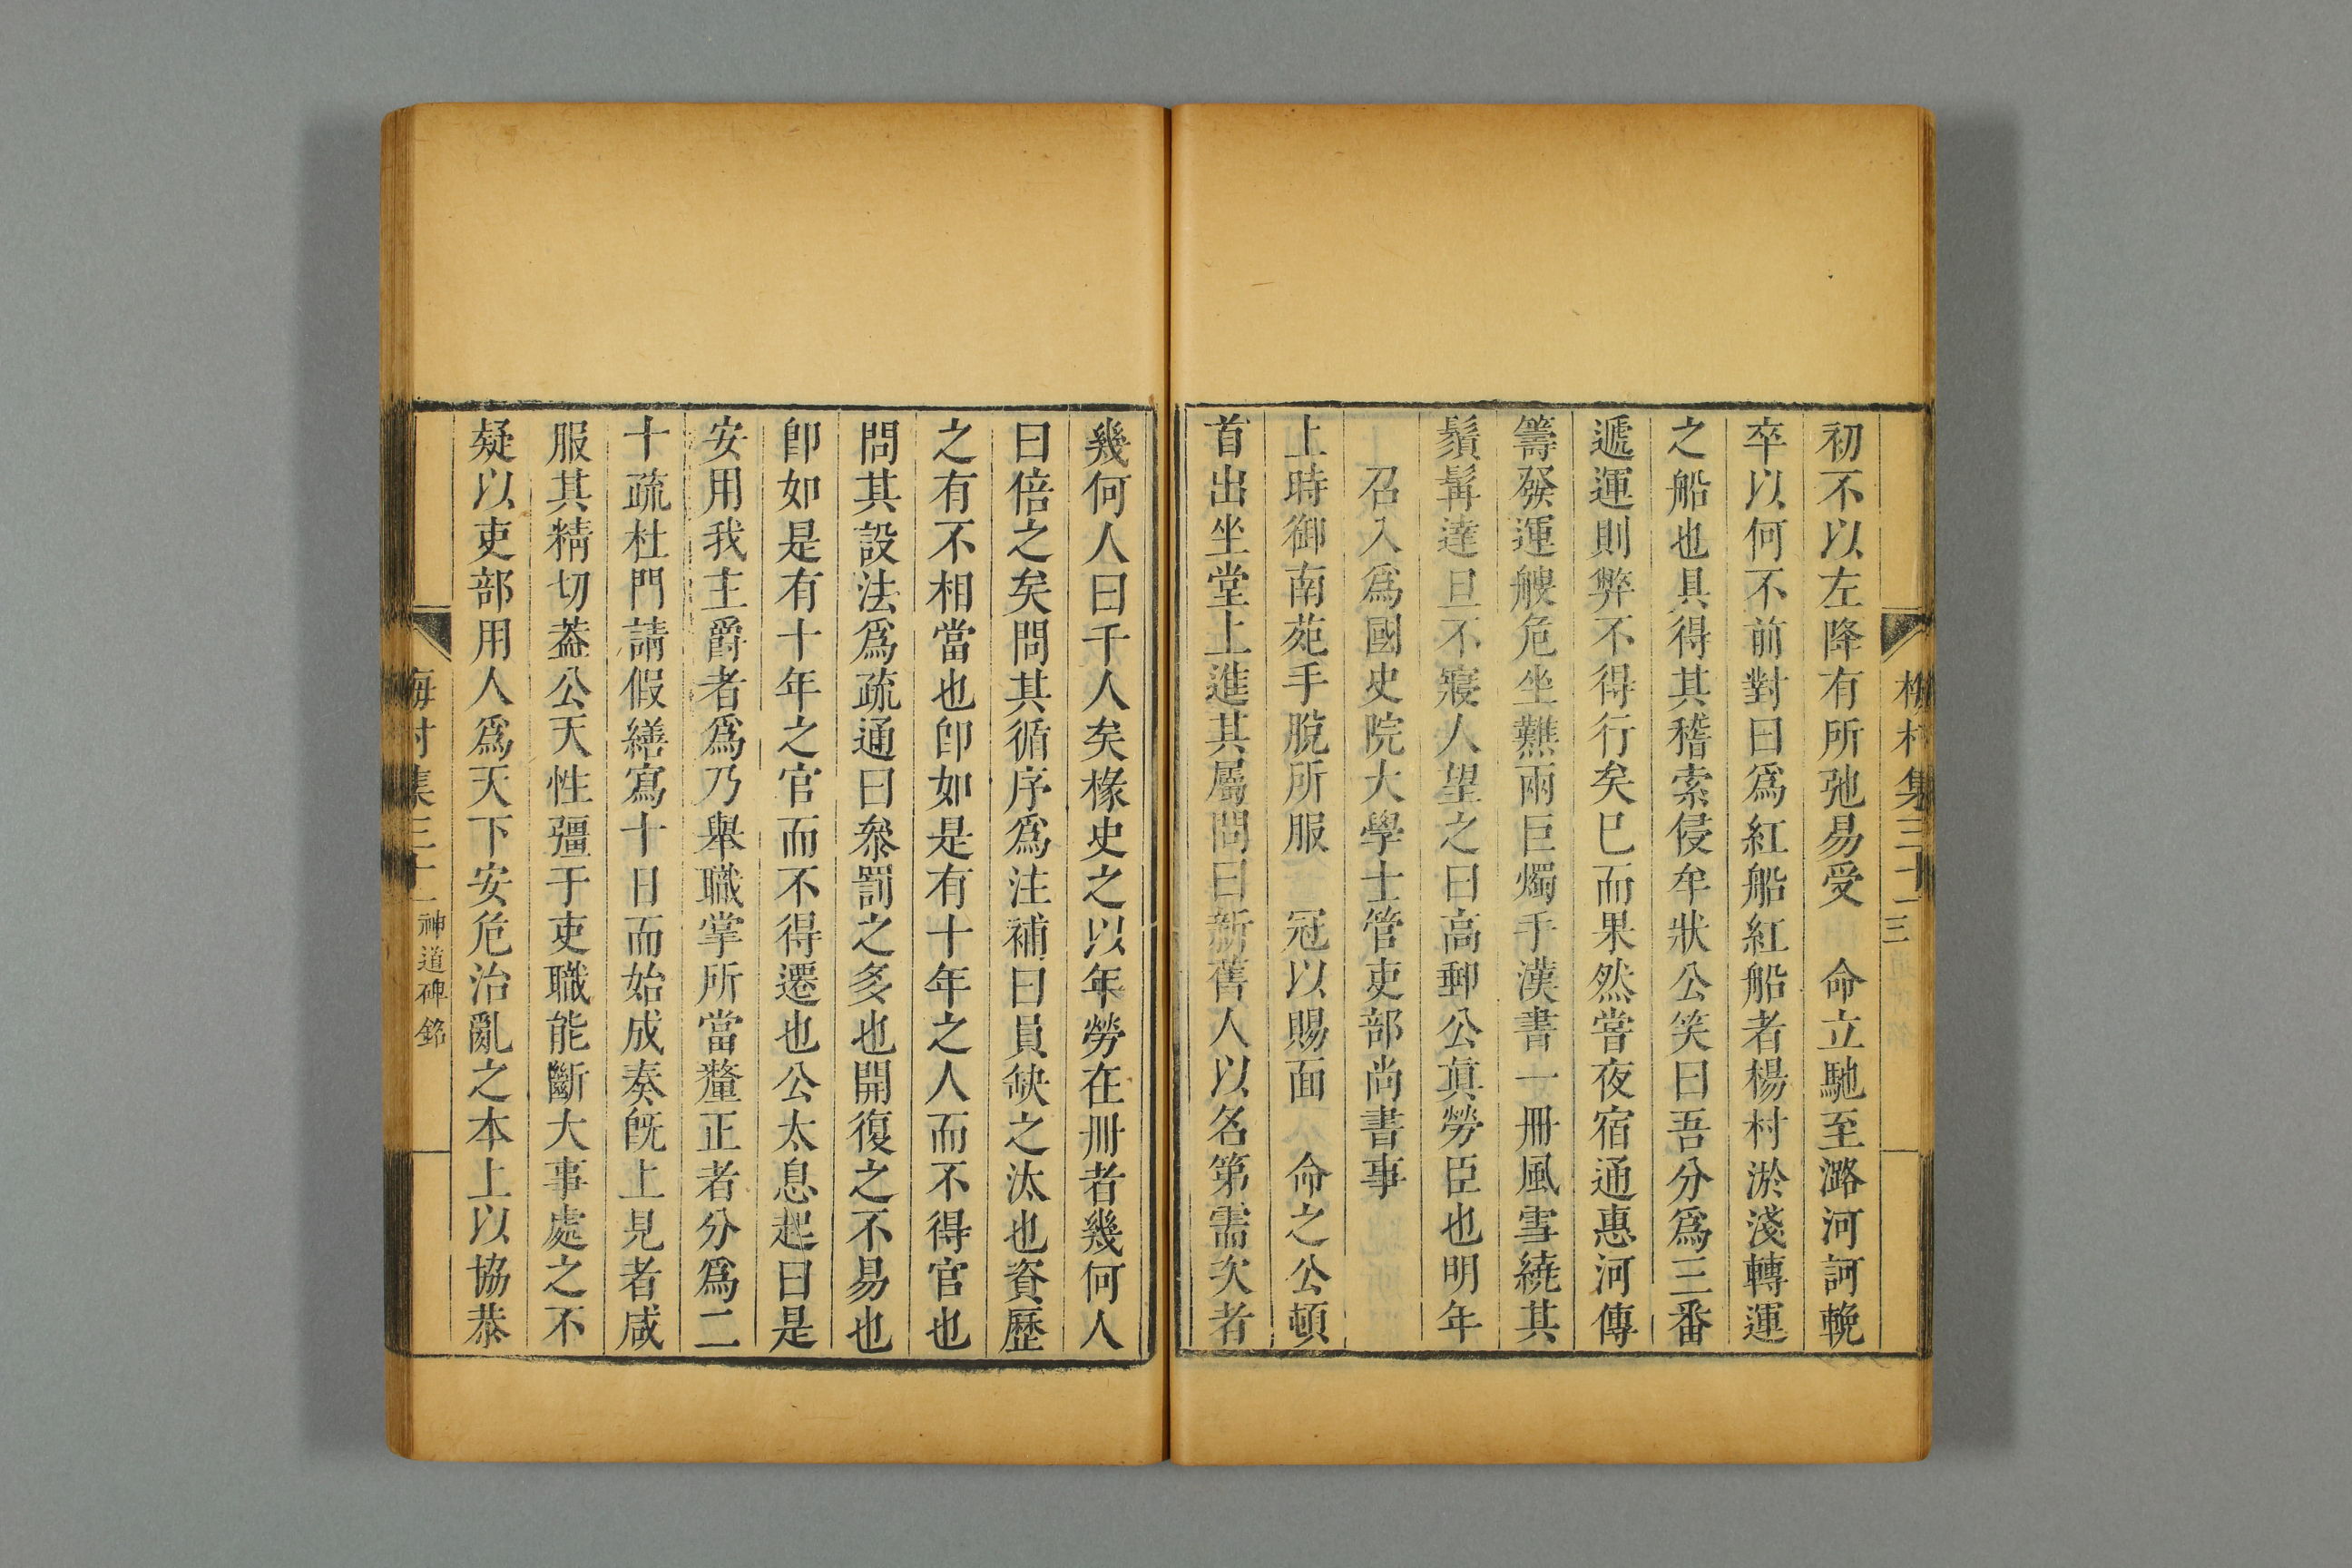 梅村集三十二
三
初不以左降有所弛易受　命立馳至潞河訶輓
卒以何不前對曰爲紅船紅船者楊村淤淺轉運
之船也具得其稽索侵牟狀公笑曰吾分爲三番
遞運則弊不得行矣已而果然嘗夜宿通惠河傳
籌發運艘危坐爇兩巨燭手漢書一冊風雪繞其
鬚髯達旦不寢人望之曰高郵公眞勞臣也明年
召入爲國史院大學士管吏部尚書事
上時御南苑手脫所服　冠以賜面　命之公頓
首出坐堂上進其屬問曰新舊人以名第需次者
幾何人曰千人矣椽史之以年勞在冊者幾何人
曰倍之矣問其循序爲注補曰員缺之汰也資歷
之有不相當也卽如是有十年之人而不得官也
問其設法爲疏通曰叅罰之多也開復之不易也
卽如是有十年之官而不得遷也公太息起曰是
安用我主爵者爲乃舉職掌所當釐正者分爲二
十疏杜門請假繕寫十日而始成奏旣上見者咸
服其精切葢公天性彊于吏職能斷大事處之不
疑以吏部用人爲天下安危治亂之本上以協恭
梅村集三十二
神道碑銘